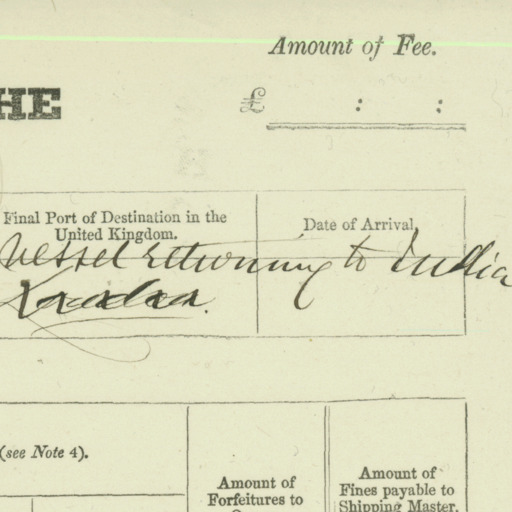 Amount of Fee.
HE
£ : :
Final Port of Destination in the
United Kingdom.
Date of Arrival
Vessel returning to India
London.
(see Note 4).
Amount of
Forfeitures to
Amount of
Fines payable to
Shipping Master.